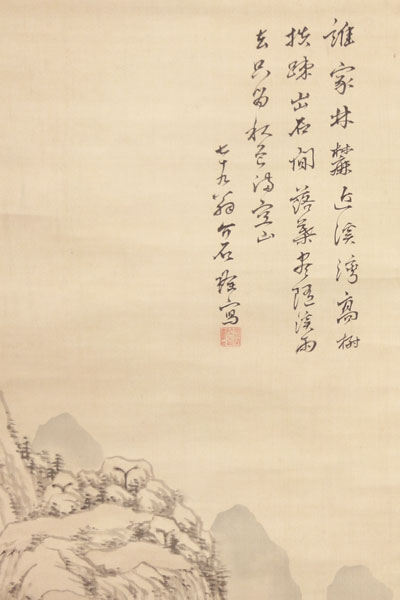 誰家林麓近溪湾高樹
扶疎出石間落葉尽隨溪雨
去只留秋色満空山
七十九翁介石 寫